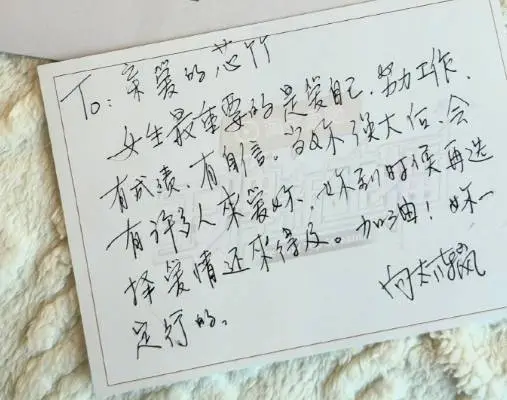 To：亲爱的芯竹
女生最重要的是爱自己，努力工作，
有成绩，有自信。当妳强大后，会
有许多人来爱妳，妳到时候再选
择爱情还来得及。加油！妳一
定行的。